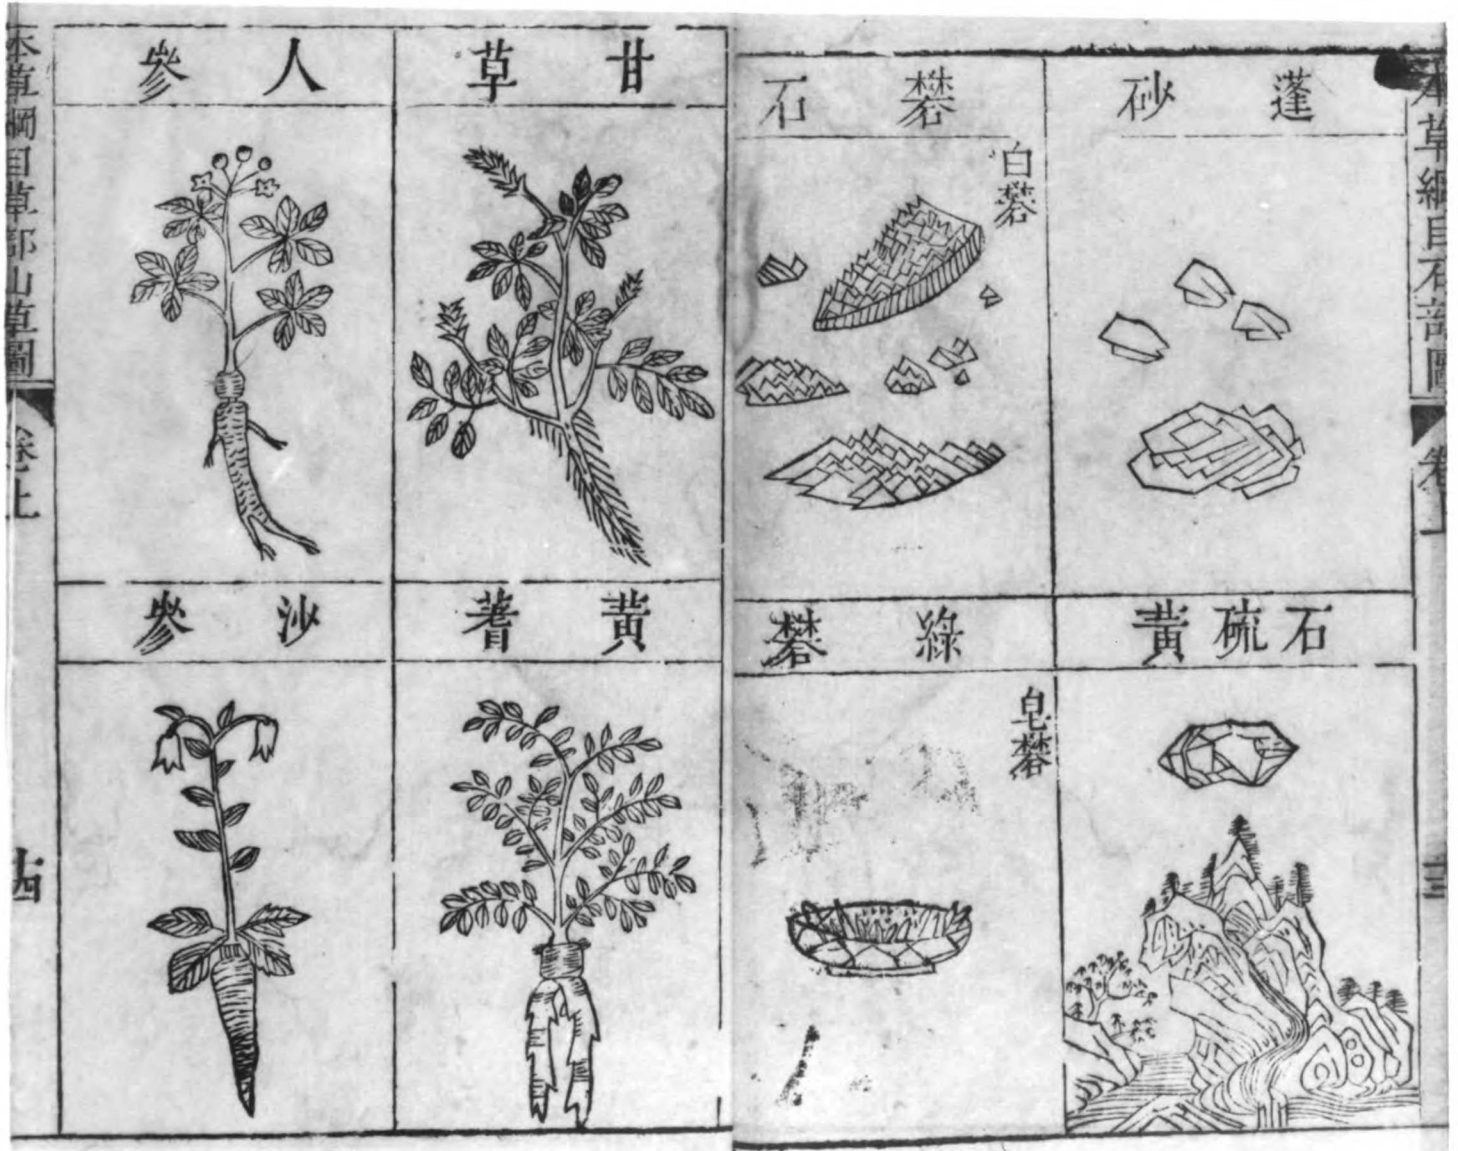 本草綱目石部圖
卷
三
蓬砂
礬石
白礬
石硫黃
綠礬
皂礬
甘草
人參
黃蓍
沙參
本草綱目草部山草圖
卷上